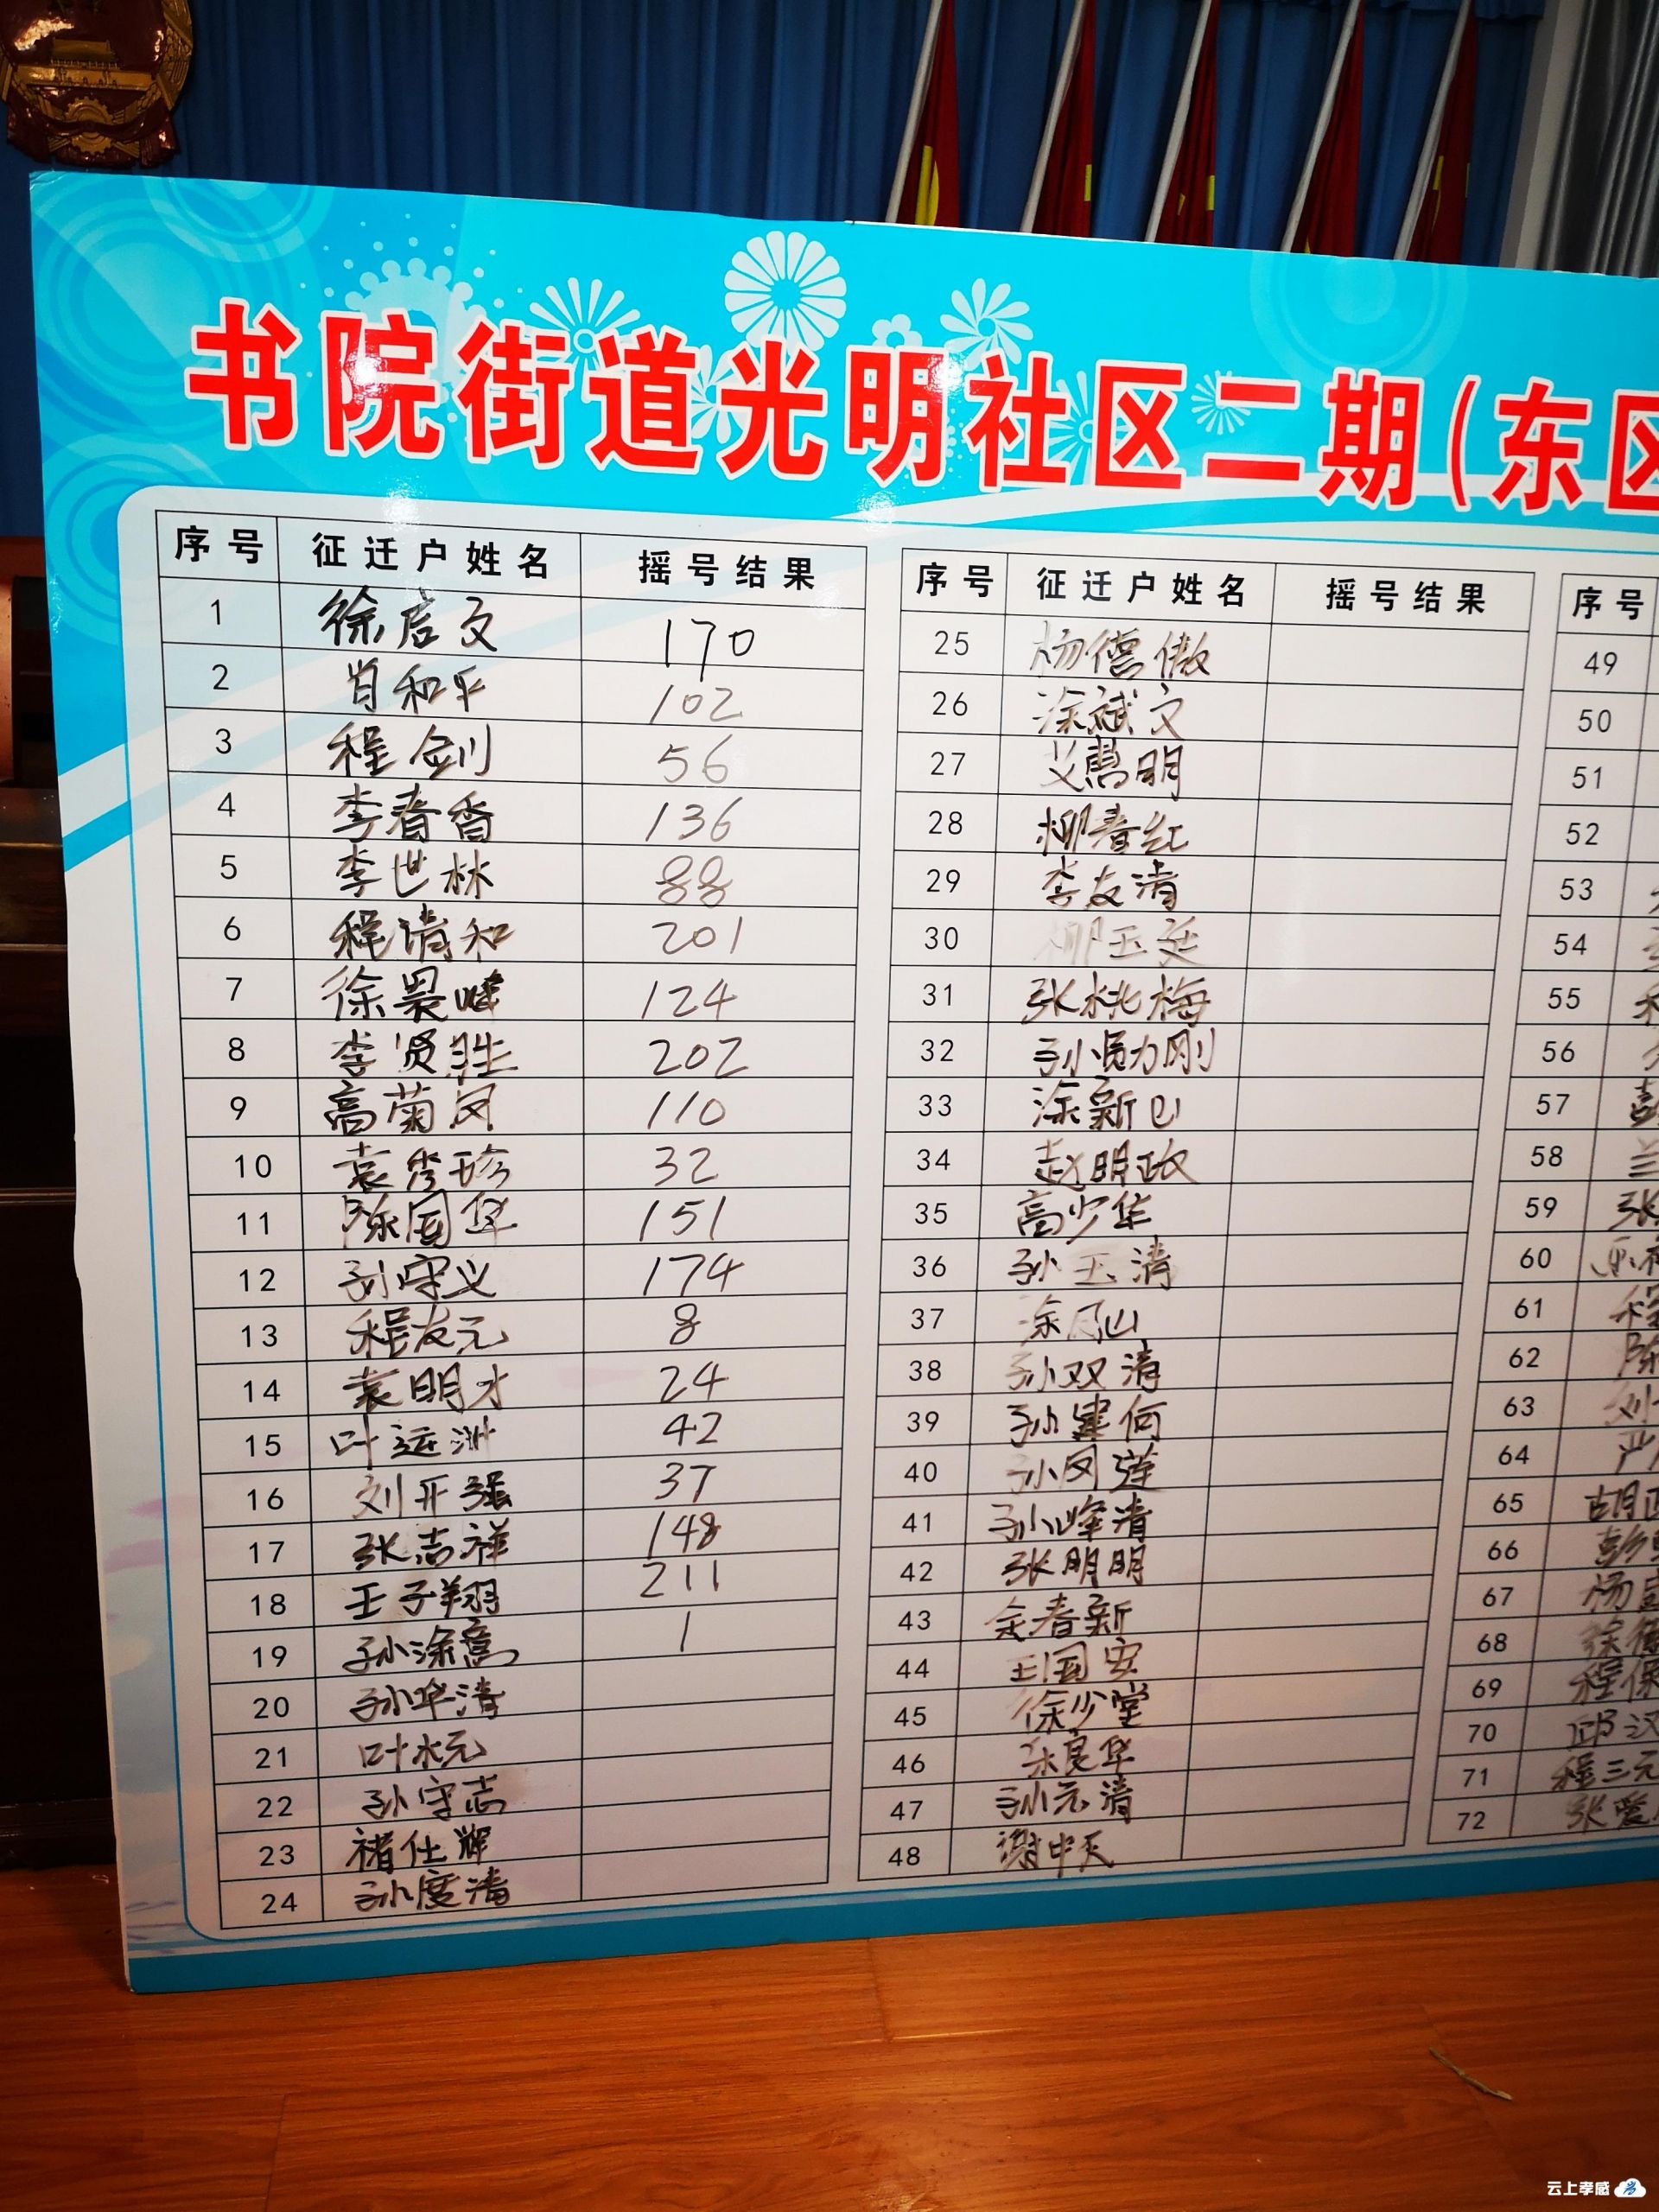 书院街道光明社区二期(东区
序号 征迁户姓名 摇号结果
1 徐启文 170
2 肖和平 102
3 程剑 56
4 李春香 136
5 李世林 88
6 程清和 201
7 徐晨峰 124
8 李贤胜 202
9 高菊凤 110
10 袁秀珍 32
11 陈国华 151
12 孙守义 174
13 程友元 8
14 袁明才 24
15 叶远洲 42
16 刘开强 37
17 张志祥 148
18 王子翔 211
19 孙涂高 1
20 孙华清
21 叶水元
22 孙守志
23 褚仕辉
24 孙度清
序号 征迁户姓名 摇号结果
25 杨德傲
26 涂斌文
27 艾明
28 柳春红
29 李友清
30 柳玉廷
31 张桃梅
32 孙勋刚
33 涂新
34 赵明政
35 高少华
36 孙玉清
37 涂山
38 孙双清
39 孙建何
40 孙凤莲
41 孙峰清
42 张明明
43 金春新
44 王国安
45 徐少堂
46 张良华
47 孙元清
48 谢中天
序号
49
50
51
52
53
54
55
56
57 彭
58 兰
59 张
60
61 程
62 陈
63 刘
64 严
65 胡
66 彭
67 杨
68 徐
69 程保
70 邱汉
71 程三元
72 张爱
云上孝感